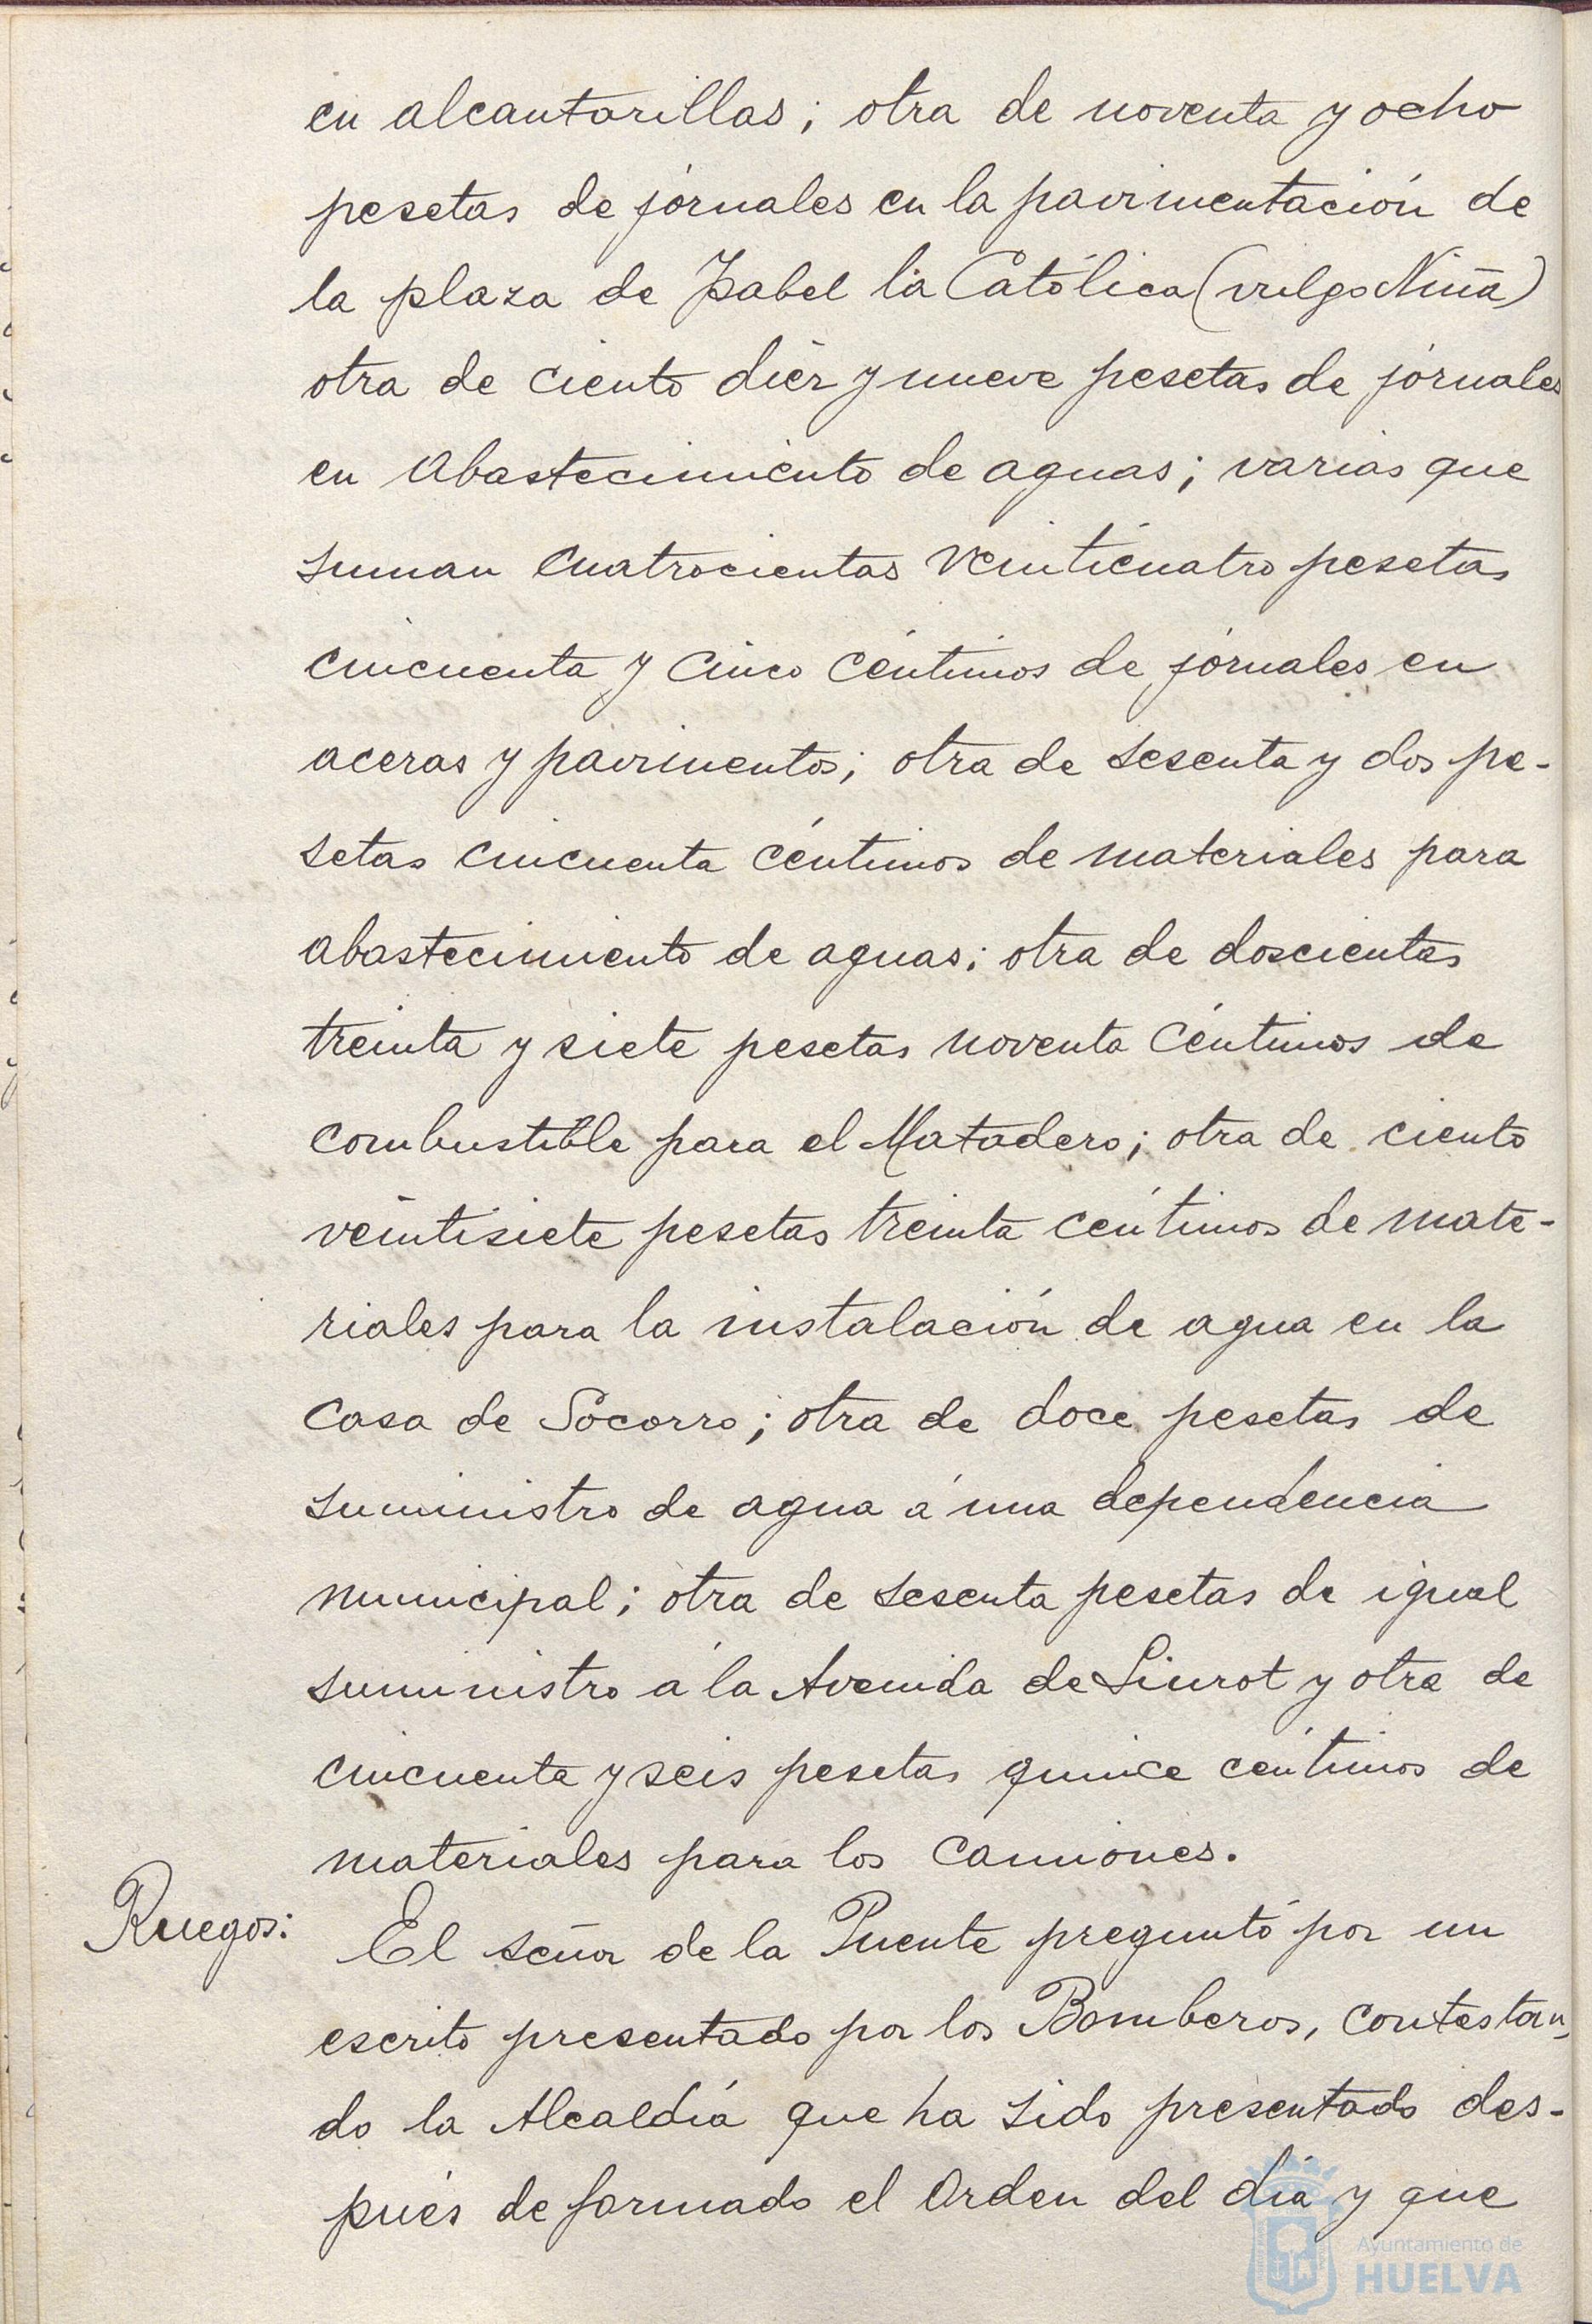 en alcantarillas; otra de noventa y ocho
pesetas de jornales en la pavimentación de
la plaza de Isabel la Católica (vulgo Niña)
otra de ciento diez y nueve pesetas de jornales
en abastecimiento de aguas; varias que
suman cuatrocientas veinticuatro pesetas
cincuenta y cinco céntimos de jornales en
aceras y pavimentos; otra de sesenta y dos pe-
setas cincuenta céntimos de materiales para
abastecimiento de aguas; otra de doscientas
treinta y siete pesetas noventa céntimos de
combustible para el Matadero; otra de ciento
veintisiete pesetas treinta céntimos de mate-
riales para la instalación de agua en la
Casa de Socorro; otra de doce pesetas de
suministro de agua á una dependencia
municipal; otra de sesenta pesetas de igual
suministro á la Avenida de Siurot y otra de
cincuenta y seis pesetas quince céntimos de
materiales para los camiones.
Ruegos: El señor de la Puente preguntó por un
escrito presentado por los Bomberos, contestan-
do la Alcaldía que ha sido presentado des-
pués de formado el Orden del día y que
Ayuntamiento de
HUELVA